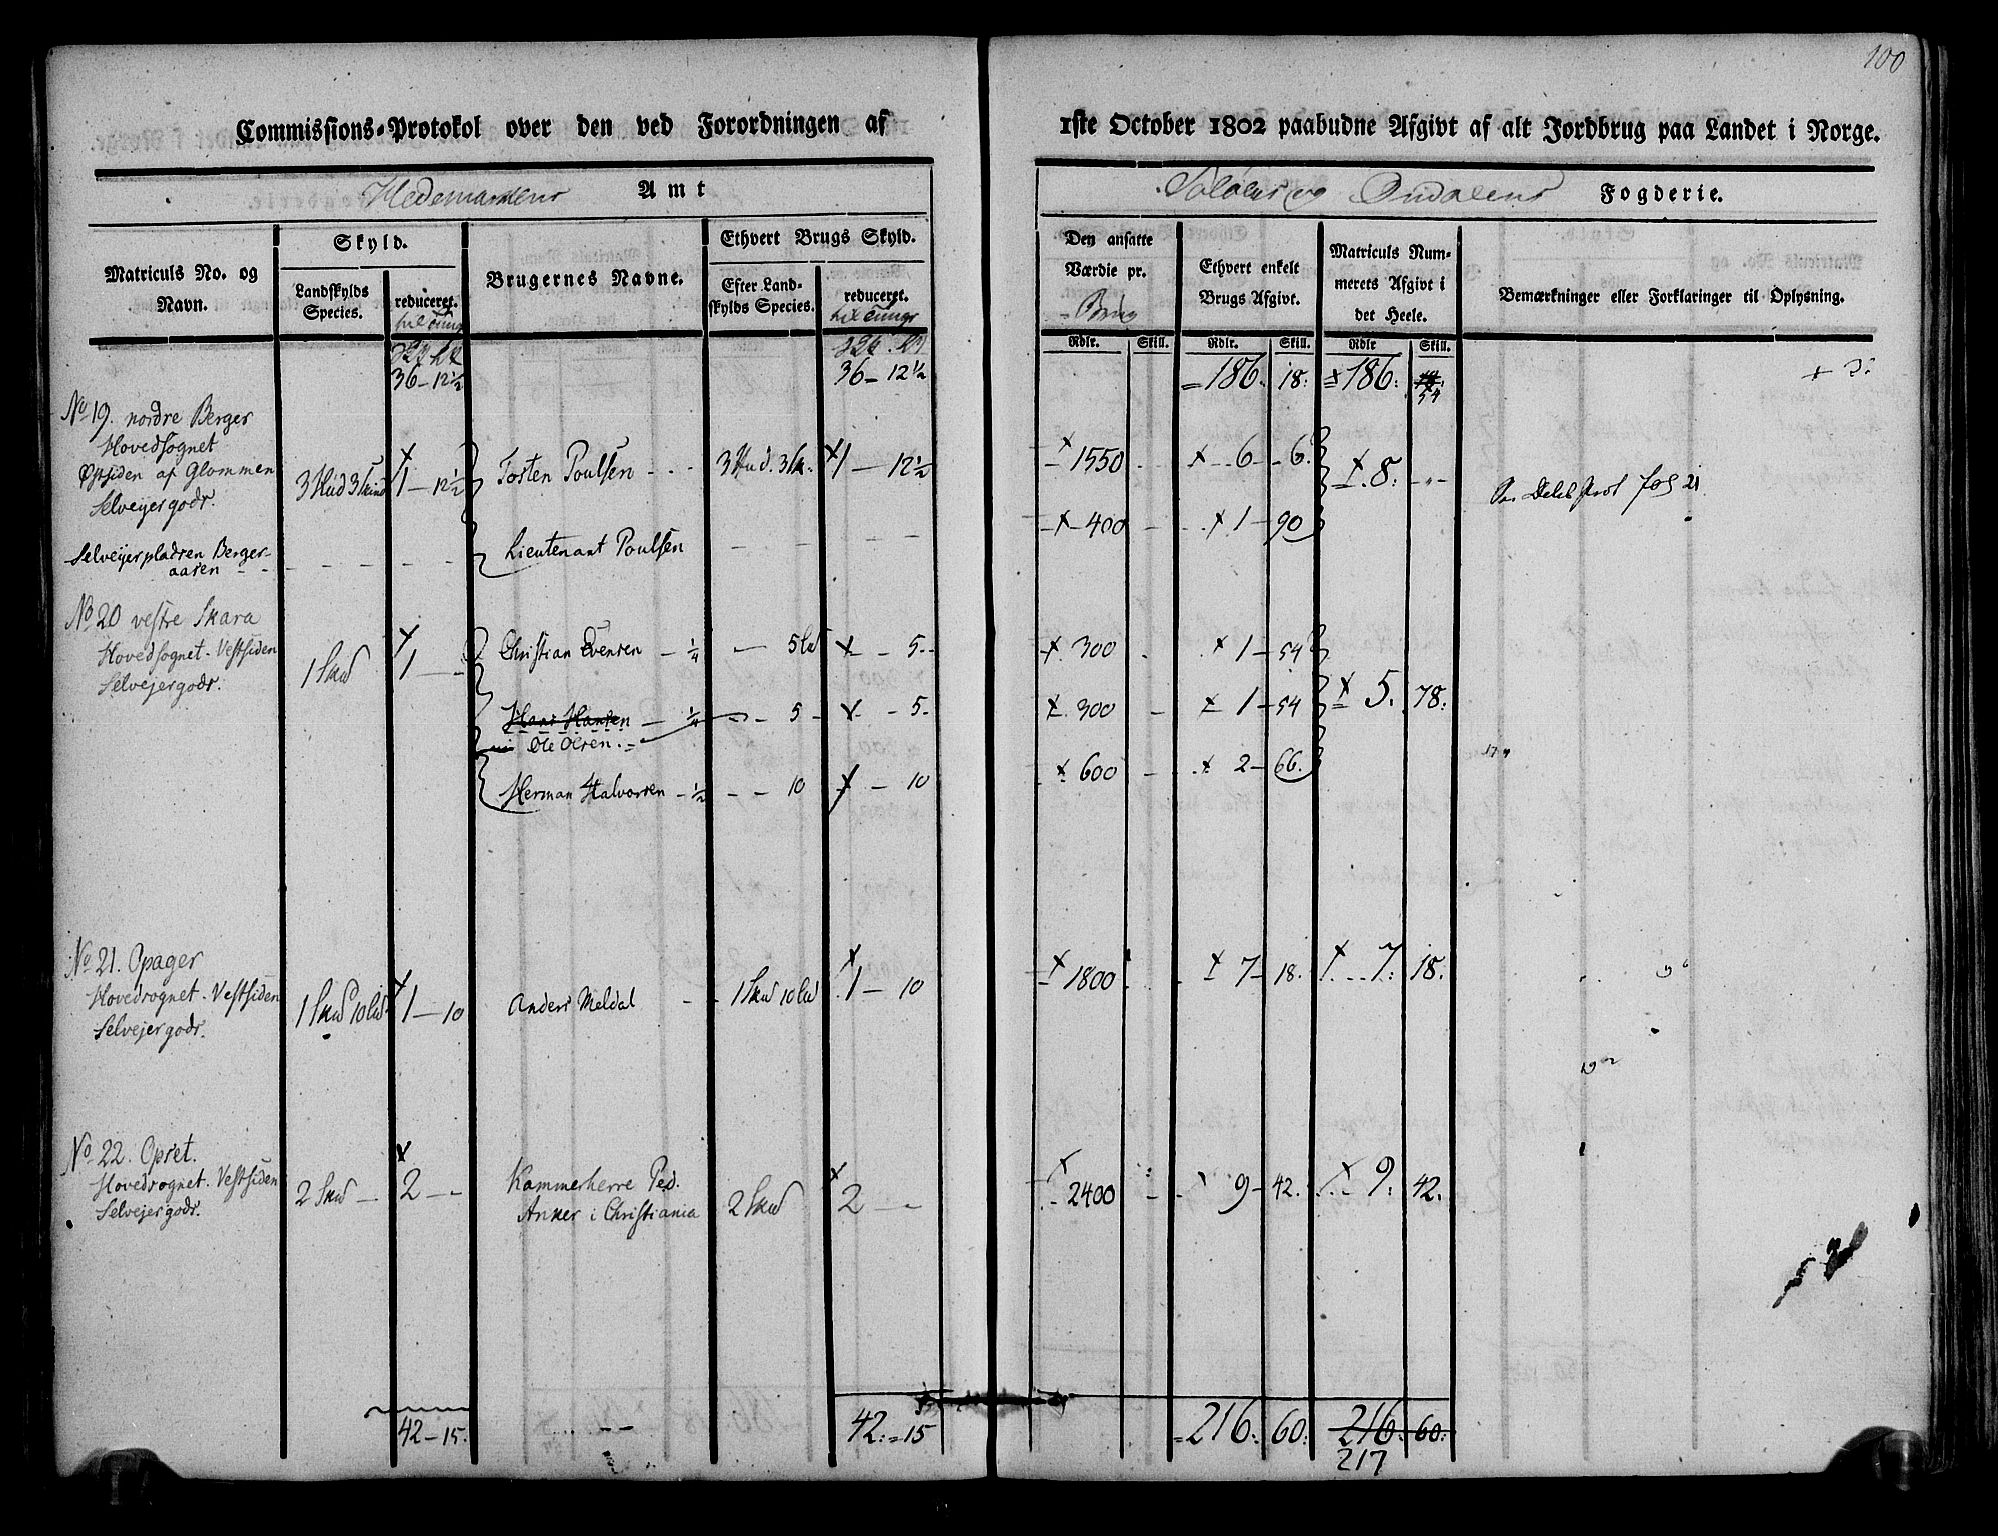 100
Commissions-Protokol over den ved Forordningen af 1ste October 1802 paabudne Afgivt af alt Jordbrug paa Landet i Norge.
Hedemarkens Amt
Soløers og Ousdalens Fogderie.
Matriculs No. og Navn.
Skyld.
Landskylds Species.
reduceret.
Brugernes Navne.
Ethvert Brugs Skyld.
Efter Land-
skylds Species.
reduceret.
Den ansatte Værdie pr.
Brug
Ethvert enkelt Brugs Afgivt.
Matriculs Num-
merets Afgivt i det Heele.
Bemærkninger eller Forklaringer til Oplysning.
Rdlr. Skill. Rdlr. Skill. Rdlr Skill.
36 - 12½ 36 - 12½ 186. 18: 186: 54
No 19. nordre Berger
Hovedsognet
Østsiden af Glommen
Selveyergods.
3 Hud 3 Skind 1 - 12½ Torsten Poulsen 3 Hud. 3 Sk. 1 - 12½ 1550 6 - 6. 8:
Selveyerpladsen Berger-
aasen
Lieutenant Poulsen 400 1 - 90
No 20 vestre Skara
Hovedsognet. Vestsiden
Selvejergods.
1 Skud 1 - Christian Evensen - ¼ 5 Lud 5 300 1 - 54 5. 78:
Hans Hansen - ¼ 5 5 300 1 - 54
Ole Olsen.
Herman Halvorsen - ½ 10 10 600 2 - 66.
No 21. Opager
Hovedsognet. Vestsiden
Selvejergods.
1 Skud 10 Lud 1 - 10 Anders Meldal 1 Skud 10 Lud 1 - 10 1800 7 - 18. 7: 18.
No 22. Opset.
Hovedsognet. Vestsiden
Selvejergods.
2 Skud 2 Kammerherre Ped.
Anker i Christiania 2 Skud 2 2400 9 - 42. 9. 42.
42 - 15. 42. = 15 216. 60. 216. 60.
217